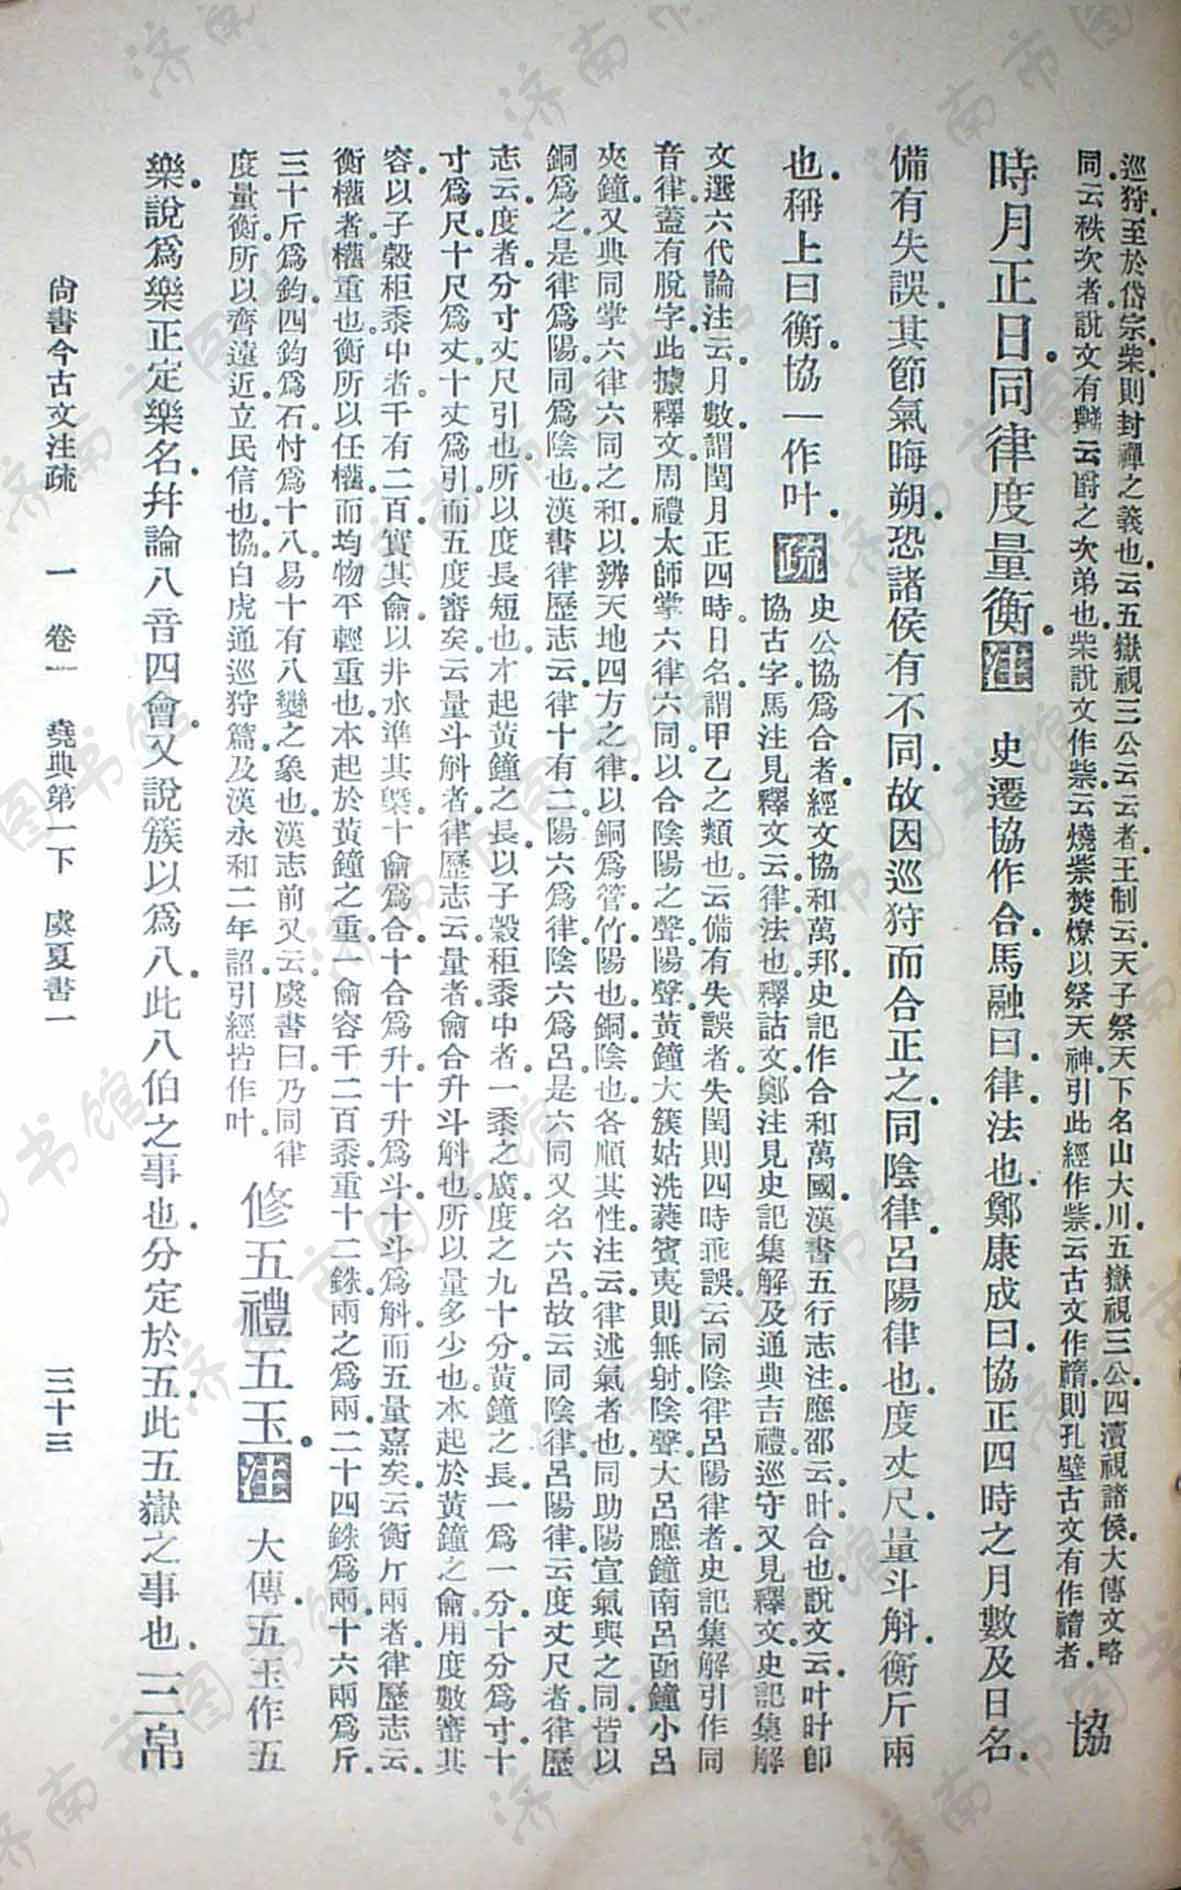 巡狩至於岱宗柴則封禪之義也云五嶽視三公云云者王制云天子祭天下名山大川五嶽視三公四瀆視諸侯大傳文略
同云秩次者說文有䵻云爵之次弟也柴說文作祡云燒祡焚燎以祭天神引此經作祡云古文作䄟則孔壁古文有作䄟者
協
時月正日同律度量衡注 史遷協作合馬融曰律法也鄭康成曰協正四時之月數及日名
備有失誤其節氣晦朔恐諸侯有不同故因巡狩而合正之同陰律呂陽律也度丈尺量斗斛衡斤兩
也稱上曰衡協一作叶疏
史公協爲合者經文協和萬邦史記作合和萬國漢書五行志注應邵云叶合也說文云叶旪卽
協古字馬注見釋文云律法也釋詁文鄭注見史記集解及通典吉禮巡守又見釋文史記集解
文選六代論注云月數謂閏月正四時日名謂甲乙之類也云備有失誤者失閏則四時乖誤云同陰律呂陽律者史記集解引作同
音律蓋有脫字此據釋文周禮太師掌六律六同以合陰陽之聲陽聲黃鐘大簇姑洗蕤賓夷則無射陰聲大呂應鐘南呂函鐘小呂
夾鐘又典同掌六律六同之和以辨天地四方之律以銅爲管竹陽也銅陰也各順其性注云律述氣者也同助陽宣氣與之同皆以
銅爲之是律爲陽同爲陰也漢書律歷志云律十有二陽六爲律陰六爲呂是六同又名六呂故云同陰律呂陽律云度丈尺者律歷
志云度者分寸丈尺引也所以度長短也才起黃鐘之長以子穀秬黍中者一黍之廣度之九十分黃鐘之長一爲一分十分爲寸十
寸爲尺十尺爲丈十丈爲引而五度審矣云量斗斛者律歷志云量者龠合升斗斛也所以量多少也本起於黃鐘之龠用度數審其
容以子穀秬黍中者千有二百實其龠以井水準其槩十龠爲合十合爲升十升爲斗十斗爲斛而五量嘉矣云衡斤兩者律歷志云
衡權者權重也衡所以任權而均物平輕重也本起於黃鐘之重一龠容千二百黍重十二銖兩之爲兩二十四銖爲兩十六兩爲斤
三十斤爲鈞四鈞爲石忖爲十八易十有八變之象也漢志前又云虞書曰乃同律
度量衡所以齊遠近立民信也協白虎通巡狩篇及漢永和二年詔引經皆作叶
修五禮五玉注 大傳五玉作五
樂說爲樂正定樂名幷論八音四會又說簇以爲八此八伯之事也分定於五此五嶽之事也三帛
尙書今古文注疏 一 卷一 堯典第一下 虞夏書一 三十三